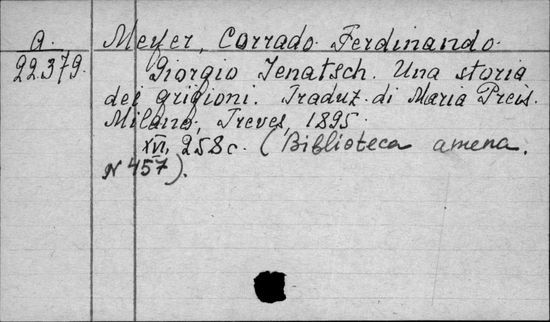 A.
22.379.
Meyer, Corrado Ferdinando.
Giorgio Jenatsch. Una storia
dei grigioni. Traduz. di Maria Preis.
Milano, Treves, 1895.
XVI, 258c. (Biblioteca amena.
N 457).